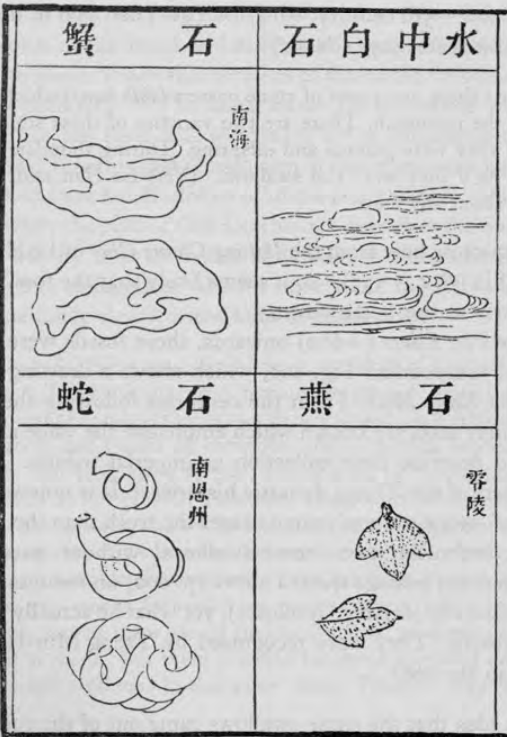 水中白石
石蟹
南海
石燕
零陵
石蛇
南恩州